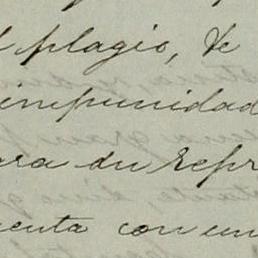 l plagio, te
impunidad
ara du repr
uenta con un